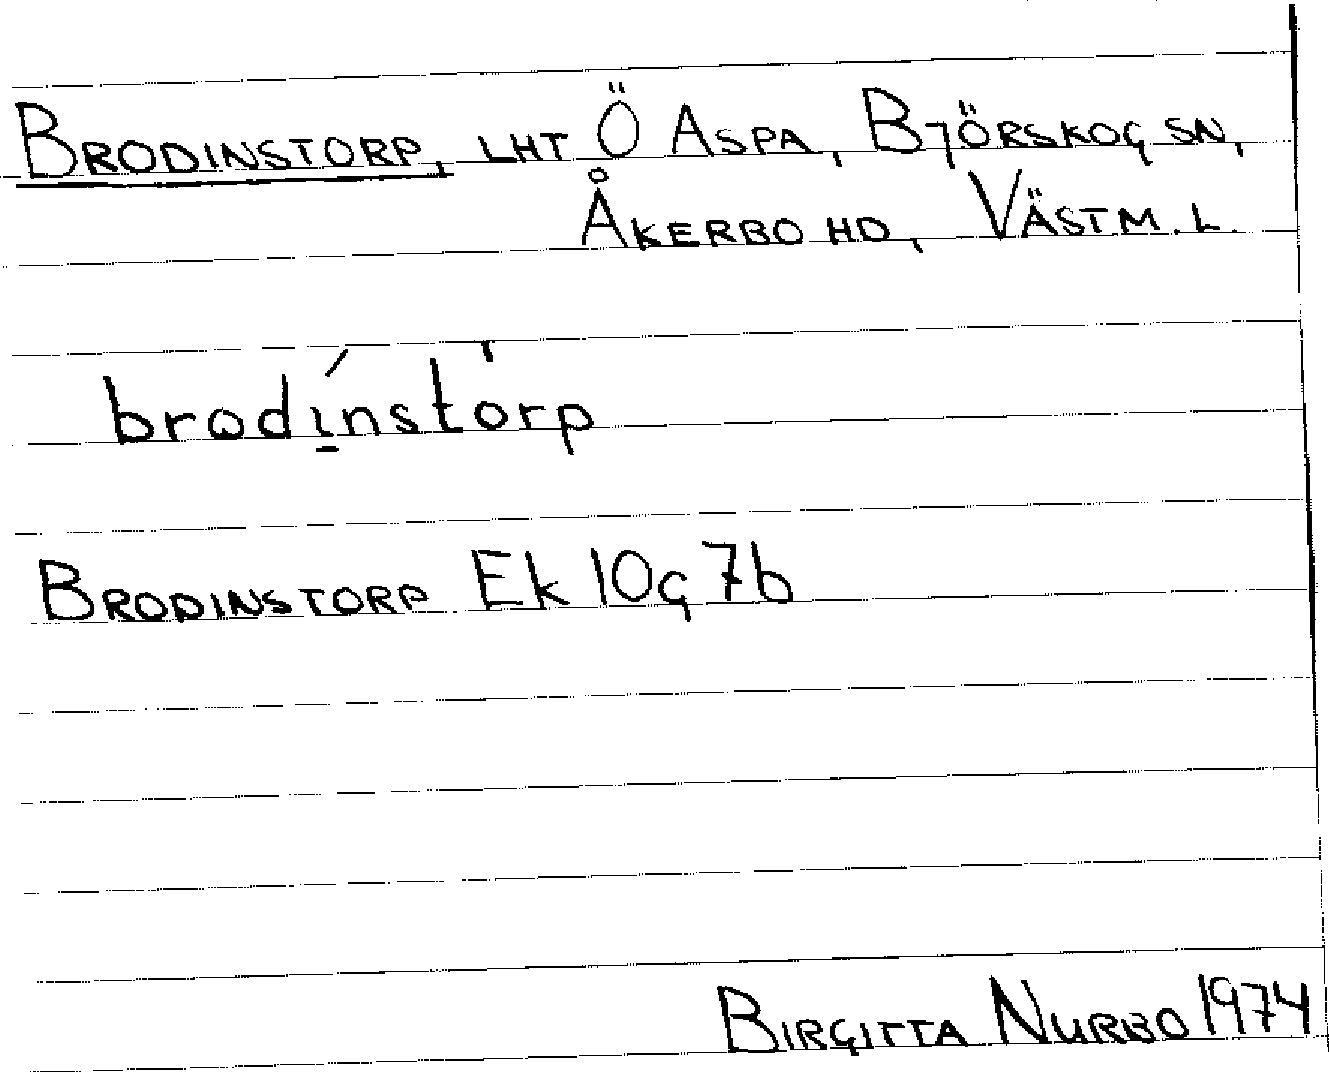 BRODINSTORP, LHT Ö ASPA, BJÖRSKOG SN,
ÅKERBO HD, VÄSTM. L.
brodí̱nstòrp
BRODINSTORP Ek 10g 7b
BIRGITTA NURBO 1974